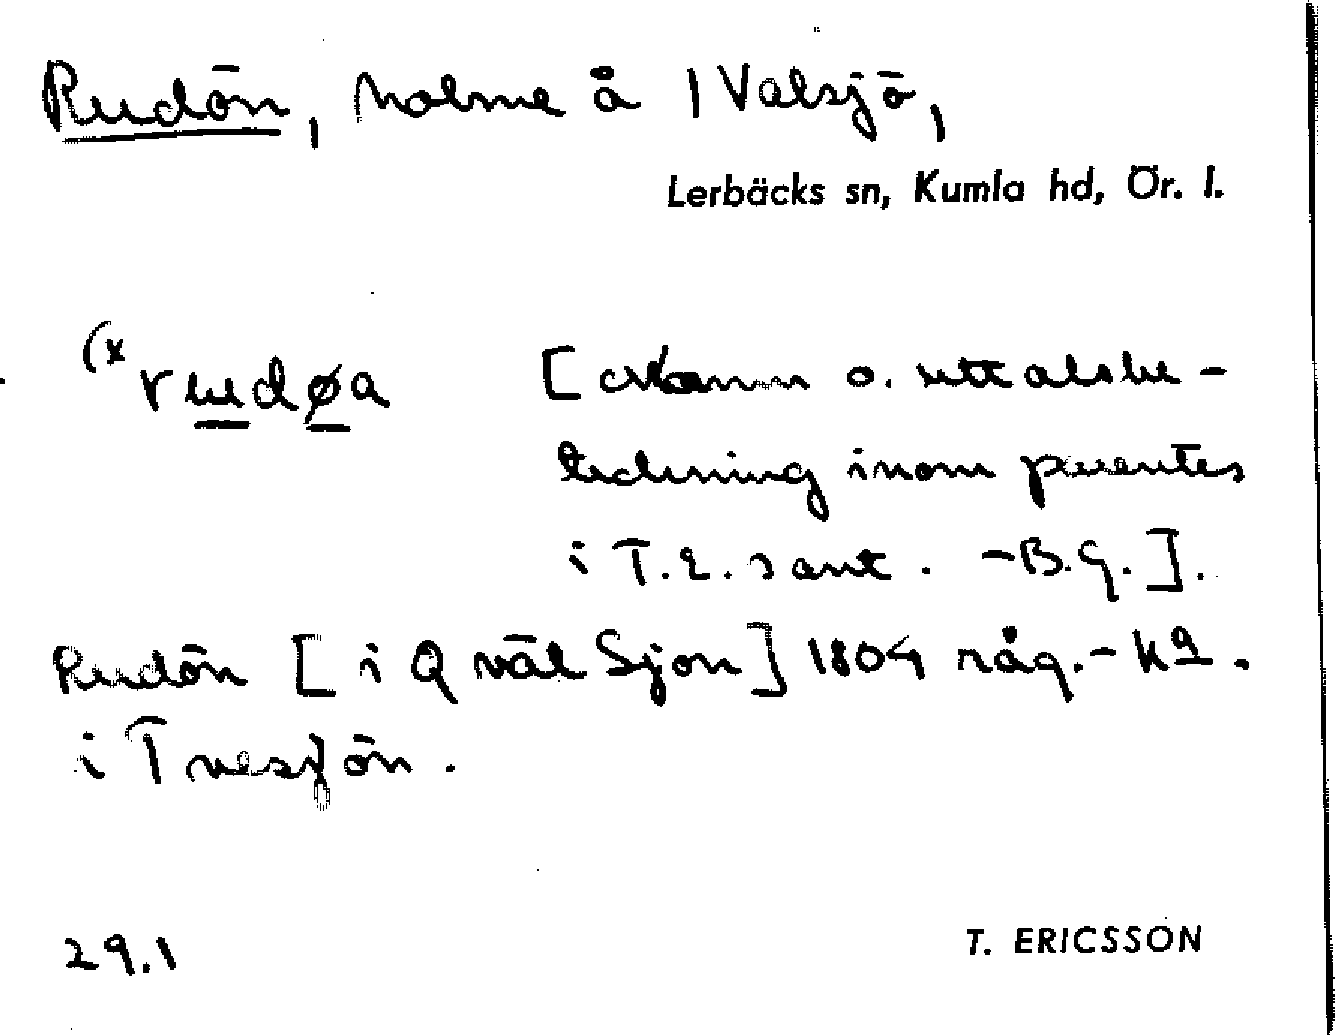 Rudön, holme å 1 Valsjö,
Lerbäcks sn, Kumla hd, Ör. l.
(x rudøa [Namn o. uttalsbe-
teckning inom parentes
i T.E. samt. - B.G.].
Rudön [i Qväl Sjon] 1804 råg.-k9.
i Tvesjön.
29.1 T. ERICSSON